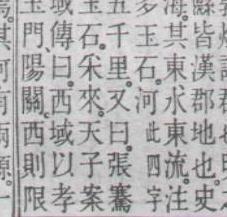 皆漢郡地也史
海。其東水東流。注
多玉石。河此四字
五千里。又曰。張騫
玉石。采來。天子案
域傳曰。西域以孝
玉門、陽關、西則限
其河有兩源。一